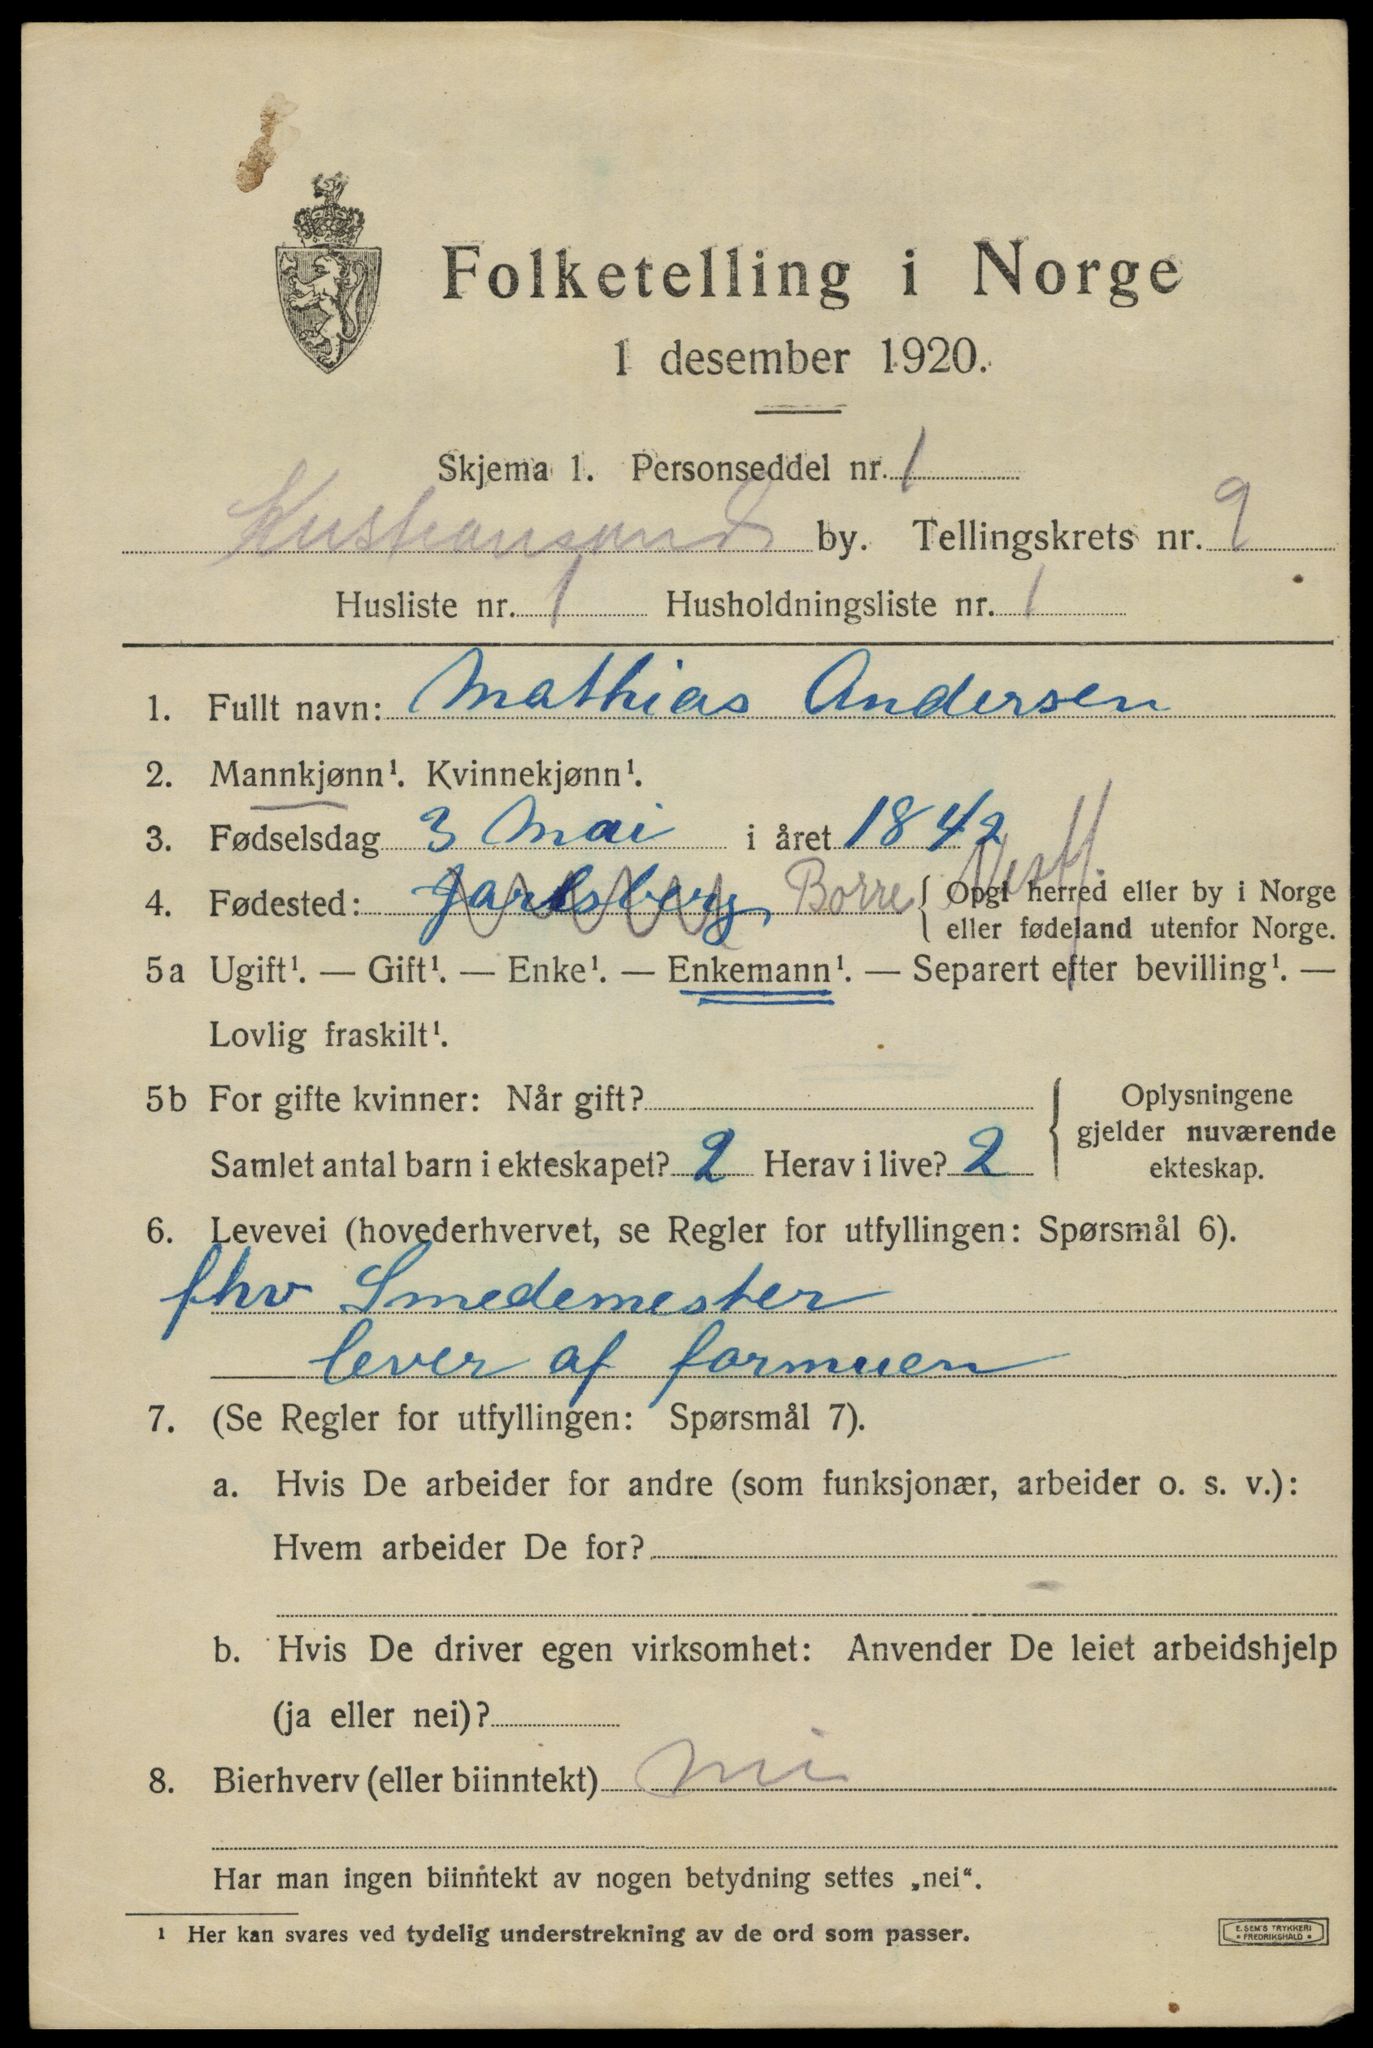 Folketelling i Norge
1 desember 1920.
Skjema 1. Personseddel nr. 1
Kristiansand by. Tellingskrets nr. 9
Husliste nr. 1 Husholdningsliste nr. 1
1. Fullt navn: Mathias Andersen
2. Mannkjønn¹. Kvinnekjønn¹.
3. Fødselsdag 3 Mai i året 1842
4. Fødested: Jarlsberg, Borre Vestf. { Opgi herred eller by i Norge
eller fødeland utenfor Norge.
5a Ugift¹. — Gift¹. — Enke¹. — Enkemann¹. — Separert efter bevilling¹. —
Lovlig fraskilt¹.
5b For gifte kvinner: Når gift? { Oplysningene
gjelder nuværende
Samlet antal barn i ekteskapet? 2 Herav i live? 2 ekteskap.
6. Levevei (hovederhvervet, se Regler for utfyllingen: Spørsmål 6).
fhv Smedemester
lever af formuen
7. (Se Regler for utfyllingen: Spørsmål 7).
a. Hvis De arbeider for andre (som funksjonær, arbeider o. s. v.):
Hvem arbeider De for?
b. Hvis De driver egen virksomhet: Anvender De leiet arbeidshjelp
(ja eller nei)?
8. Bierhverv (eller biinntekt) nei
Har man ingen biinntekt av nogen betydning settes „nei“.
¹ Her kan svares ved tydelig understrekning av de ord som passer.
E. SEM'S TRYKKERI
• FREDRIKSHALD •